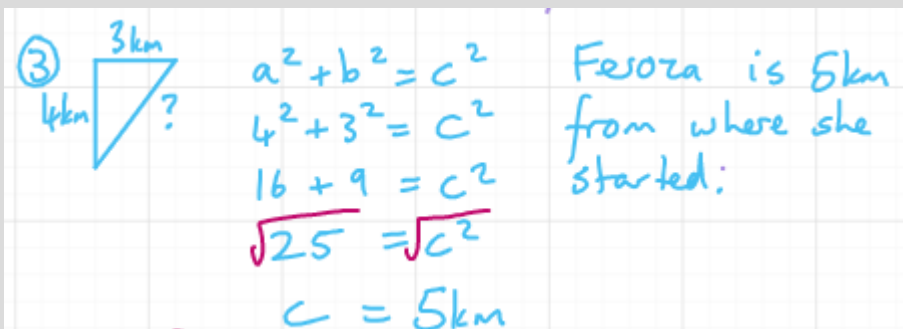 ③
3km
4km
?
a² + b² = c²
4² + 3² = c²
16 + 9 = c²
√25 = √c²
c = 5km
Fesoza is 5km
from where she
started.